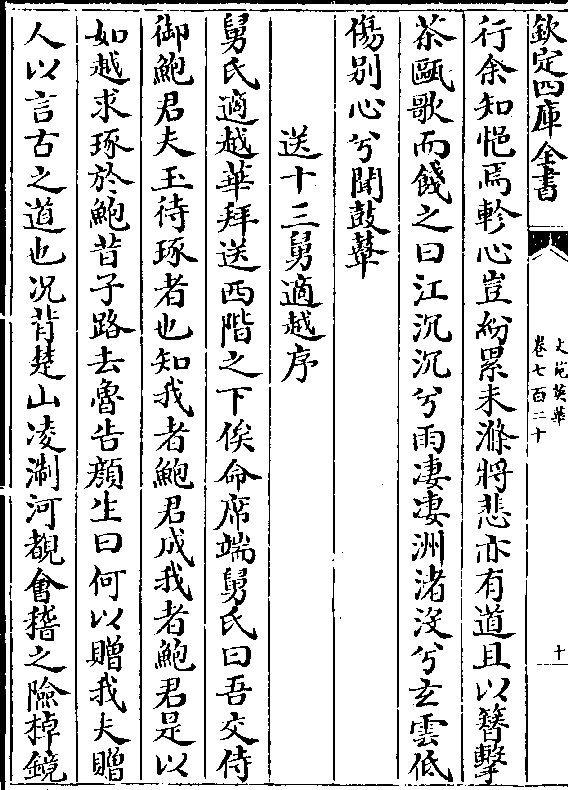 欽定四庫全書
文苑英華
卷七百二十
十
行余知悒焉軫心豈紛累未滌將悲亦有道且以簪擊
茶甌歌而餞之曰江沉沉兮雨凄凄洲渚沒兮玄雲低
傷别心兮聞鼓鼙
送十三舅適越序
舅氏適越華拜送西階之下俟命席端舅氏曰吾交侍
御鮑君夫玉待琢者也知我者鮑君成我者鮑君是以
如越求琢於鮑昔子路去魯告顔生曰何以贈我夫贈
人以言古之道也况背楚山凌淛河覩會稽之險棹鏡